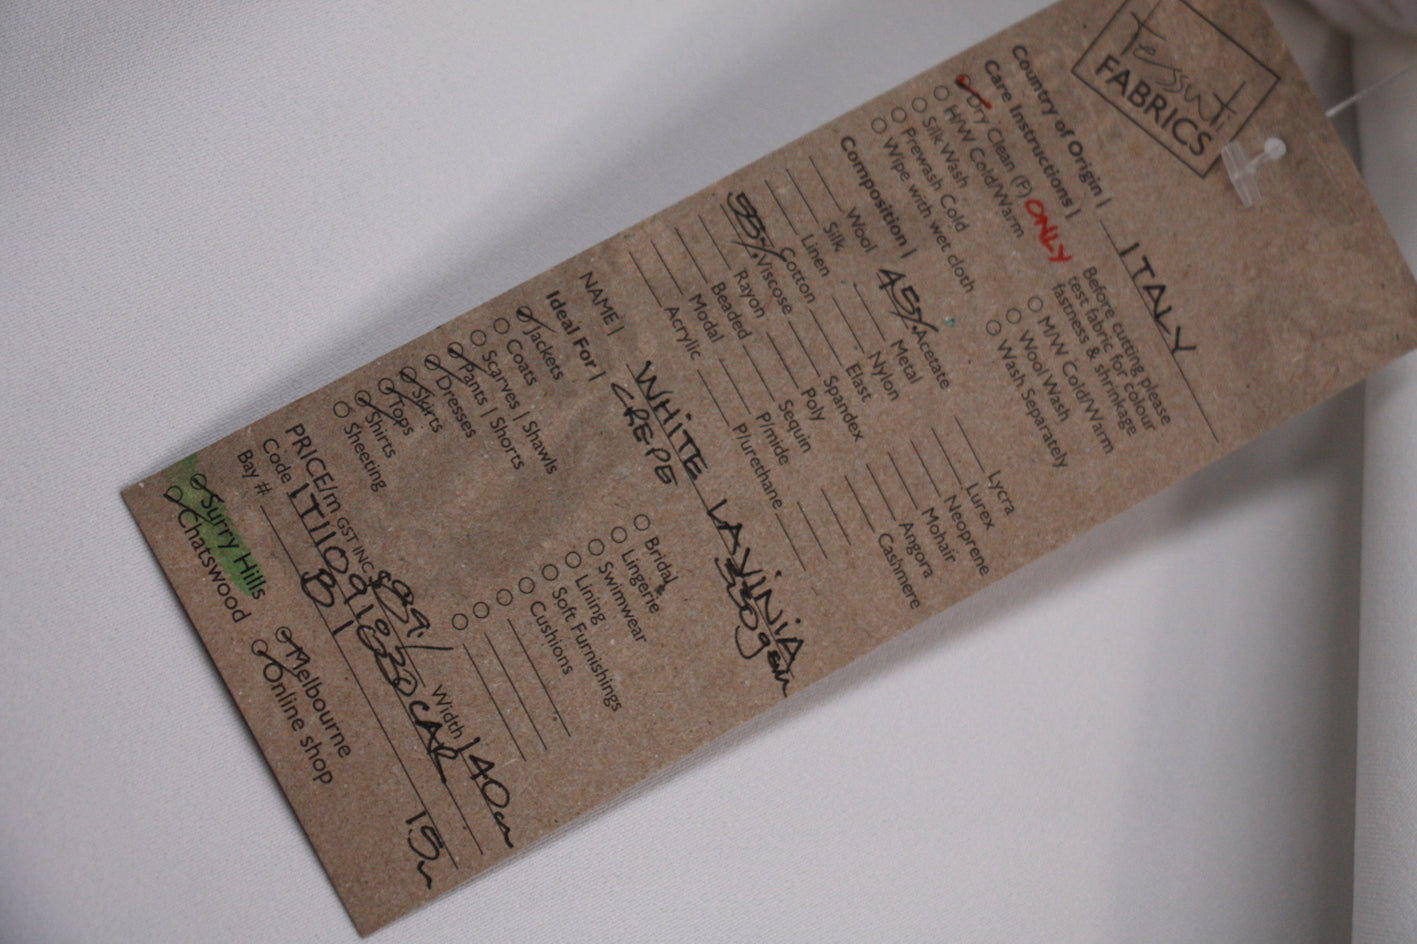 Tessuti
FABRICS
Country of Origin | ITALY
Care Instructions |
Dry Clean (F) ONLY
H/W Cold/Warm
Silk Wash
Prewash Cold
Wipe with wet cloth
Before cutting please
test fabric for colour
fastness & shrinkage
M/W Cold/Warm
Wool Wash
Wash Separately
Composition |
Wool 45% Acetate Lycra
Silk Metal Lurex
Linen Nylon Neoprene
Cotton Elast Mohair
55% Viscose Spandex Angora
Rayon Poly Cashmere
Beaded Sequin
Modal P/mide
Acrylic P/urethane
NAME | WHITE LAVINIA
CREPE 350gsm
Ideal For |
Jackets Bridal
Coats Lingerie
Scarves | Shawls Swimwear
Pants | Shorts Lining
Dresses Soft Furnishings
Skirts Cushions
Tops
Shirts
Sheeting
PRICE/m GST INC $89/ Width 140cm
Code
Bay # B1 15m
Surry Hills Melbourne
Chatswood Online shop